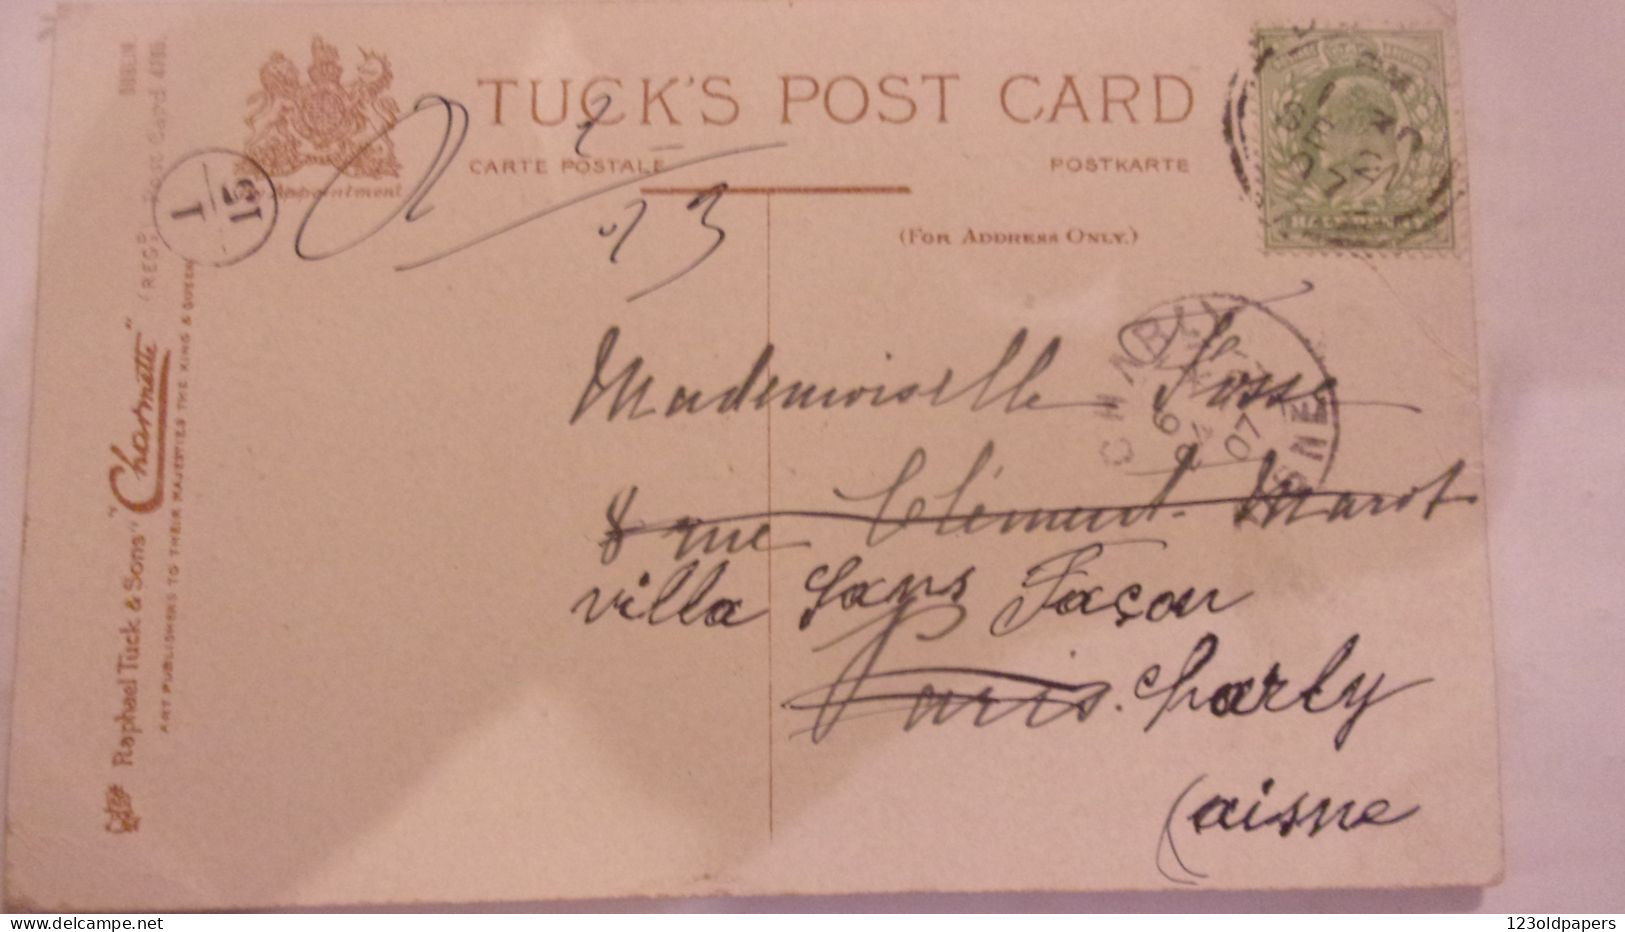 TUCK'S POST CARD
CARTE POSTALE
POSTKARTE
(FOR ADDRESS ONLY.)
By Appointment
1
15
Raphael Tuck & Sons' "Charmette"
ART PUBLISHERS TO THEIR MAJESTIES THE KING & QUEEN
Mademoiselle Fosse
8 rue Clément-Marot
villa Sans Façon
Paris. Charly
(aisne
CHARLY
07
AISNE
123oldpapers